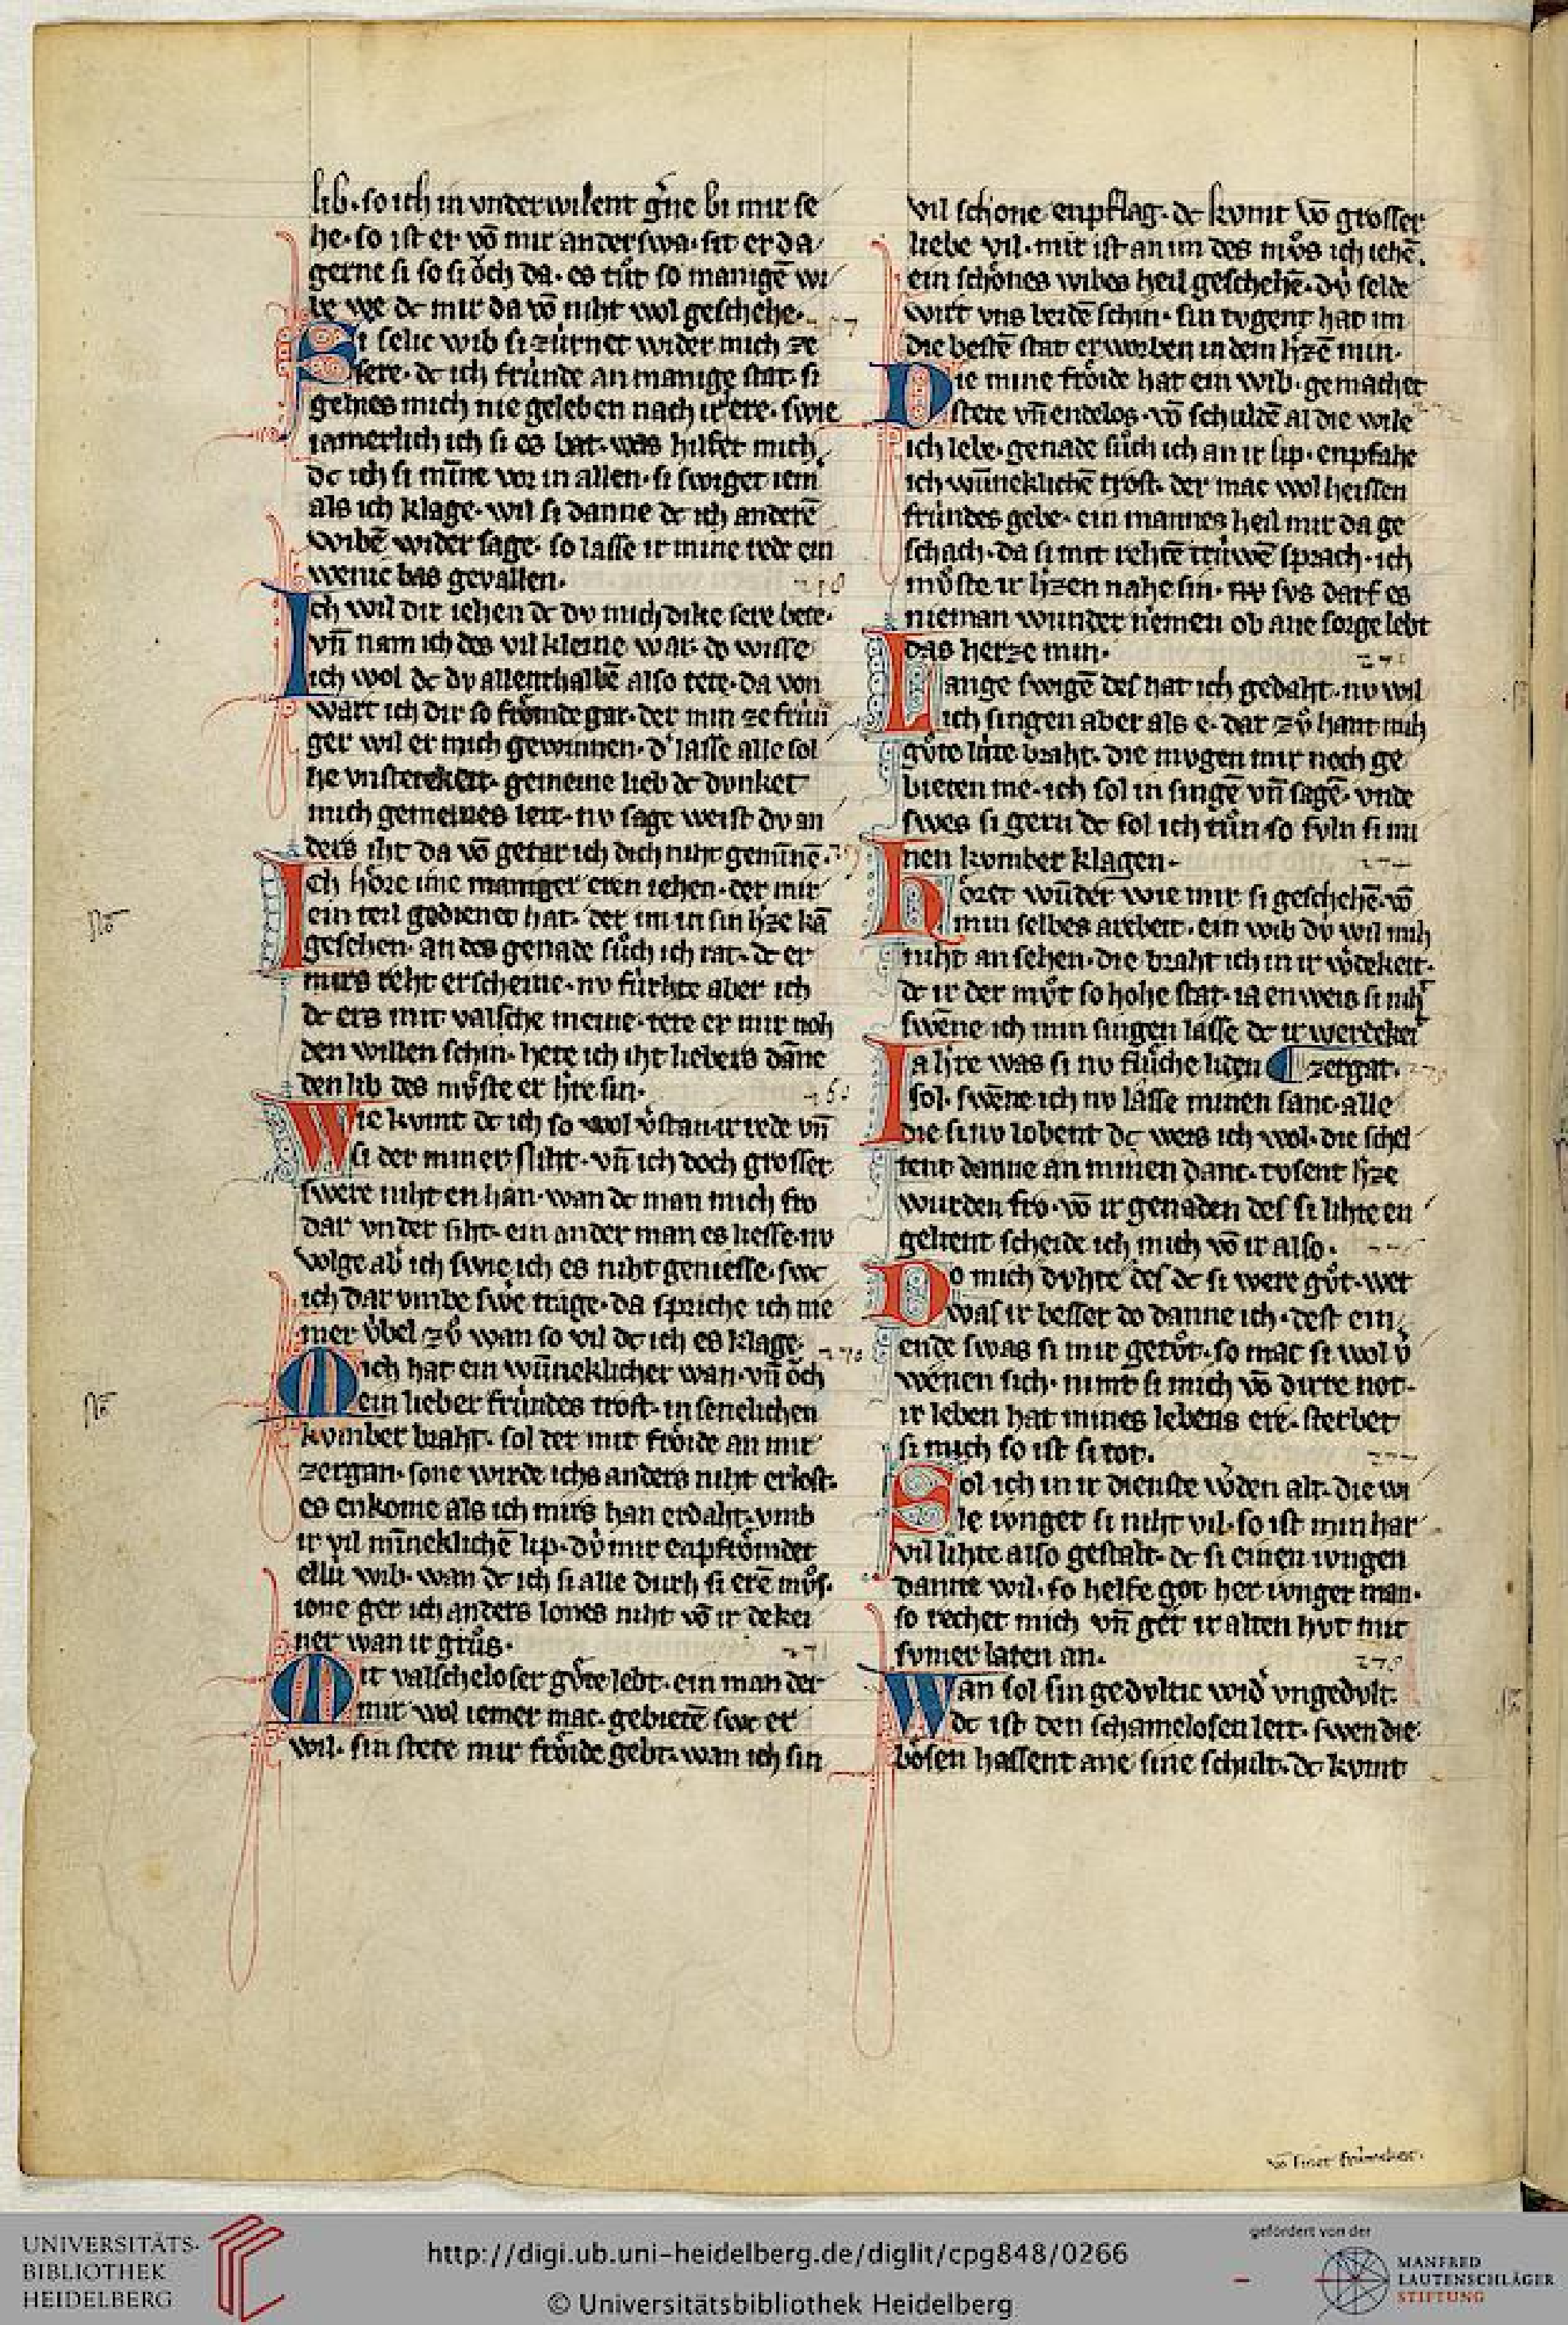 lib· so ich in vnderwilent g̾ne bi mir se
he· so ist er vō mir anderswa· sit er da
gerne si so si ŏch da· es tůt so manigē wi
be we dc mir da vō niht wol geschehe·
Si selic wib si zúrnet wider mich ze
sere· dc ich frúnde an manige stat· si
gelies mich nie geleben nach ir ere· swie
iamerlich ich si es bat· was hilfet mich
dc ich si mīne vor in allen· si swiget iem̾
als ich klage· wil si danne dc ich anderē
wibē wider sage· so lasse ir mine rede ein
wenic bas gevallen·
Ich wil dir iehen dc dv mich dike sere bete·
vn̄ nam ich des vil kleine war· do wisse
ich wol dc dv allenthalbē also tete· da von
wart ich dir so frŏmde gar· der min ze frún
ger wil er mich gewinnen· d̾ lasse alle sol
he vnstetekeit· gemeine lieb dc dvnket
mich gemeines leit· nv sage weist dv an
ders iht da vō getar ich dich niht gemīnē·
Ich hŏre ime maniger eren iehen· der mir
ein teil gedienet hat· der im in sin h̾ze kā
gesehen· an des genade sůch ich rat· dc er
mirs reht erscheine· nv fúrhte aber ich
dc ers mir valsche meine· tete er mir noh
den willen schin· hete ich iht liebers dāne
den lib des mv̊ste er h̾re sin·
Wie kvmt dc ich so wol v̾stan· ir rede vn̄
si der miner niht· vn̄ ich doch grosser
swere niht en han· wan dc man mich fro
dar vnder siht· ein ander man es liesse· nv
volge ab̾ ich swie ich es niht geniesse· swc
ich dar vmbe sw̾e trage· da spriche ich nie
mer v̊bel zů wan so vil dc ich es klage·
Mich hat ein wūneklicher wan· vn̄ ŏch
ein lieber frúndes trost· in senelichen
kvmber braht· sol der mit frŏide an mir
zergan· sone wirde ichs anders niht erlost·
es enkome als ich mirs han erdaht· vmb
ir vil mīneklichē lip· dv́ mir enpfrŏmdet
ellú wib· wan dc ich si alle durh si erē můs·
ione ger ich anders lones niht vō ir dekei
ner wan ir grůs·
Mit valscheloser gůte lebt· ein man der
mir wol iemer mac· gebietē swc er
wil· sin stete mir frŏide gebt· wan ich sin
vil schone enpflag· dc kvmt vō grosser
liebe vil· mir ist an im des můs ich iehē·
ein schŏnes wibes heil geschehē· dv́ selde
wirt vns beidē schin· sin tvgent hat im
die bestē stat erworben in dem h̾zē min·
Die mine frŏide hat ein wib· gemachet
stete vn̄ endelos· vō schuldē al die wile
ich lebe· genade sůch ich an ir lip· enpfahe
ich wūneklichē trost· der mac wol heissen
frúndes gebe· ein mannes heil mir da ge
schach· da si mit rehtē trúwē sprach· ich
mv̊ste ir h̾zen nahe sin· svs darf es
nieman wunder nemen ob ane sorge lebt
das herze min·
Lange swigē des hat ich gedaht· nv wil
ich singen aber als e· dar zů hant mih
gůte lúte braht· die mvgen mir noch ge
bieten me· ich sol in singē vn̄ sagē· vnde
swes si gern dc sol ich tůn so svln si mi
nen kvmber klagen·
Hŏret wūder wie mir si geschehē· vō
min selbes arebeit· ein wib dv́ wil mih
niht an sehen· die braht ich in ir w̾dekeit·
dc ir der můt so hohe stat· ia enweis si niht
swēne ich min singen lasse dc ir werdekeit
zergat·
Ia h̾re was si nv flůche liden
sol· swēne ich nv lasse minen sanc· alle
die si nv lobent dc weis ich wol· die schel
tent danne an minen danc· tvsent h̾ze
wurden fro· vō ir genaden des si lihte en
geltent scheide ich mich vō ir also·
Do mich dvhte des dc si were gůt· wer
was ir besser do danne ich· dest ein
ende swas si mir getůt· so mac si wol v̾
wenen sich· nimt si mich vō dirre not·
ir leben hat mines lebens ere· sterbet
si mich so ist si tot·
Sol ich in ir dienste w̾den alt· die wi
le ivnget si niht vil· so ist min har
vil lihte also gestalt· dc si einen ivngen
danne wil· so helfe got her ivnger man·
so rechet mich vn̄ get ir alten hvt mit
svmerlaten an·
Wan sol sin gedvltic wid̾ vngedvlt·
dc ist den schamelosen leit· swen die
bŏsen hassent ane sine schult· dc kvmt
vō siner frúmekeit·
UNIVERSITÄTS-
BIBLIOTHEK
HEIDELBERG
http://digi.ub.uni-heidelberg.de/diglit/cpg848/0266
© Universitätsbibliothek Heidelberg
gefördert von der
MANFRED
LAUTENSCHLÄGER
STIFTUNG